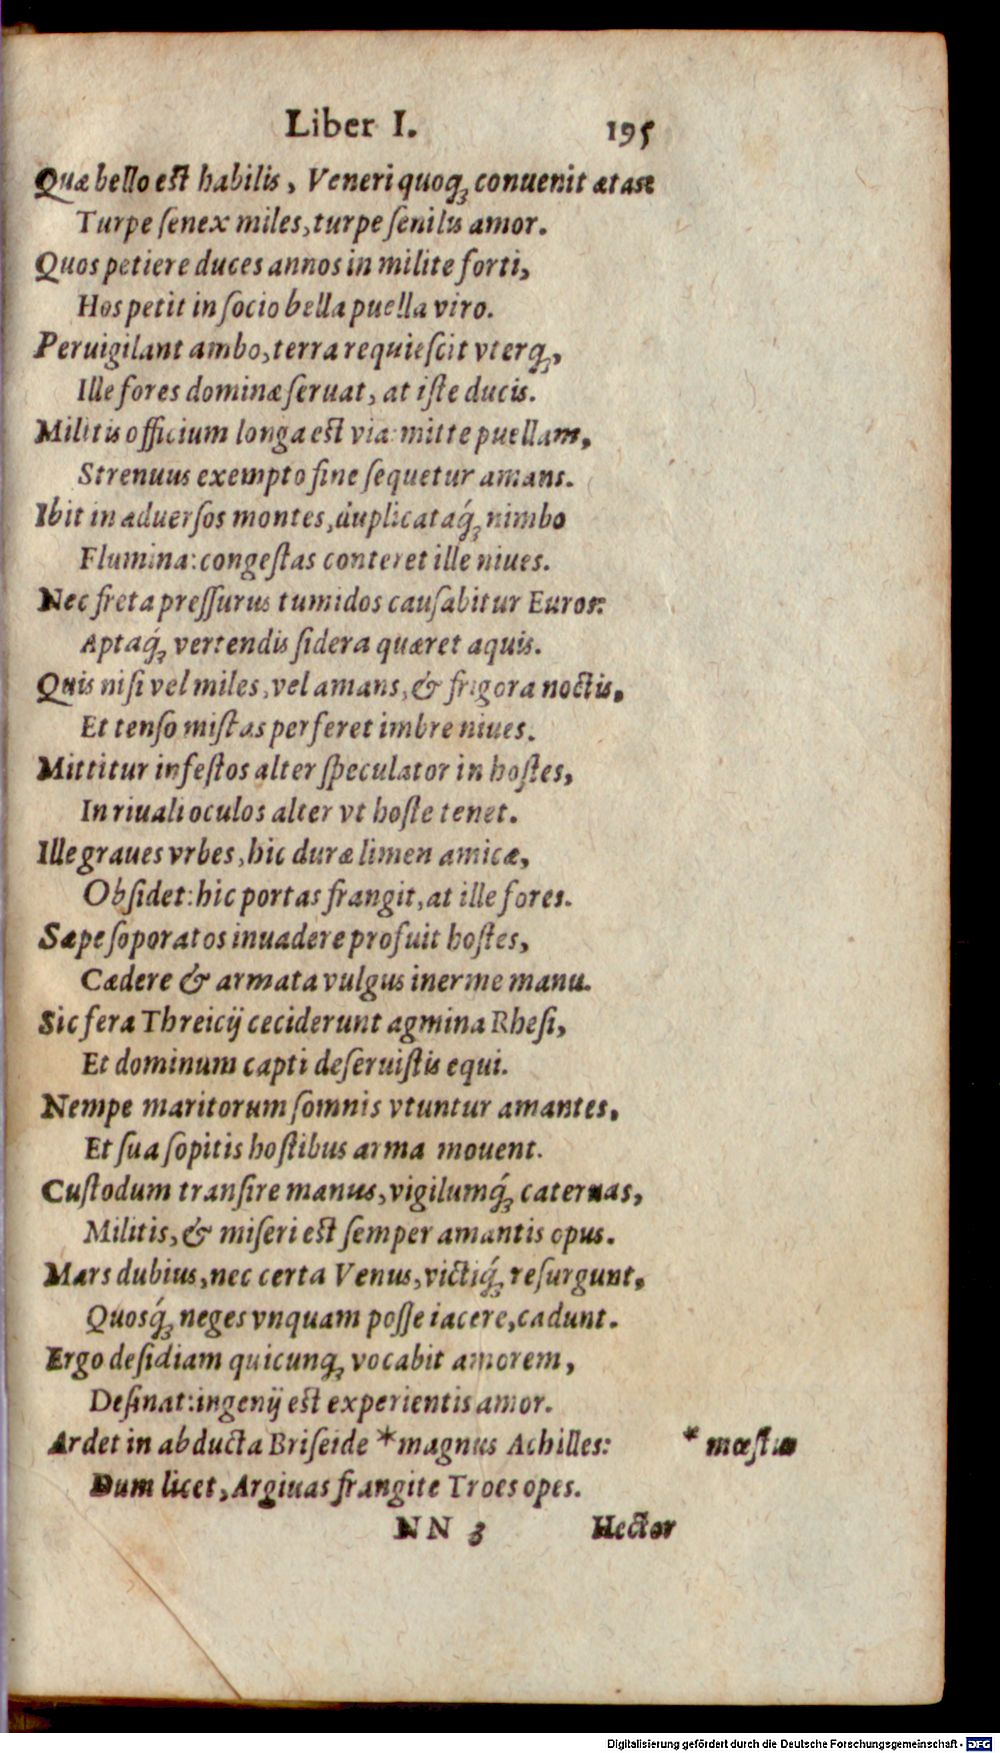 Liber I. 195
Quæ bello eſt habilis, Veneri quoq; conuenit ætas:
Turpe ſenex miles, turpe ſenilis amor.
Quos petiere duces annos in milite forti,
Hos petit in ſocio bella puella viro.
Peruigilant ambo, terra requieſcit vterq;,
Ille fores dominæ ſeruat, at iſte ducis.
Militis officium longa eſt via: mitte puellam,
Strenuus exempto fine ſequetur amans.
Ibit in aduerſos montes, duplicataq́; nimbo
Flumina: congeſtas conteret ille niues.
Nec freta preſſurus tumidos cauſabitur Euros:
Aptaq́; vertendis ſidera quæret aquis.
Quis niſi vel miles, vel amans, & frigora noctis,
Et tenſo miſtas perferet imbre niues.
Mittitur infeſtos alter ſpeculator in hoſtes,
In riuali oculos alter vt hoſte tenet.
Ille graues vrbes, hic duræ limen amicæ,
Obſidet: hic portas frangit, at ille fores.
Sæpe ſoporatos inuadere profuit hoſtes,
Cædere & armata vulgus inerme manu.
Sic fera Threicij ceciderunt agmina Rheſi,
Et dominum capti deſeruiſtis equi.
Nempe maritorum ſomnis vtuntur amantes,
Et ſua ſopitis hoſtibus arma mouent.
Cuſtodum tranſire manus, vigilumq́; cateruas,
Militis, & miſeri eſt ſemper amantis opus.
Mars dubius, nec certa Venus, victiq́; reſurgunt,
Quosq́; neges vnquam poſſe iacere, cadunt.
Ergo deſidiam quicunq; vocabit amorem,
Deſinat: ingenij eſt experientis amor.
Ardet in abducta Briſeide *magnus Achilles: * mœſtus
Dum licet, Argiuas frangite Troes opes.
NN 3 Hector
Digitalisierung gefördert durch die Deutsche Forschungsgemeinschaft - DFG